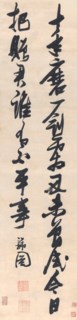 十年磨一劍霜刃未曾試今日
把贈君誰有不平事 瑞圖